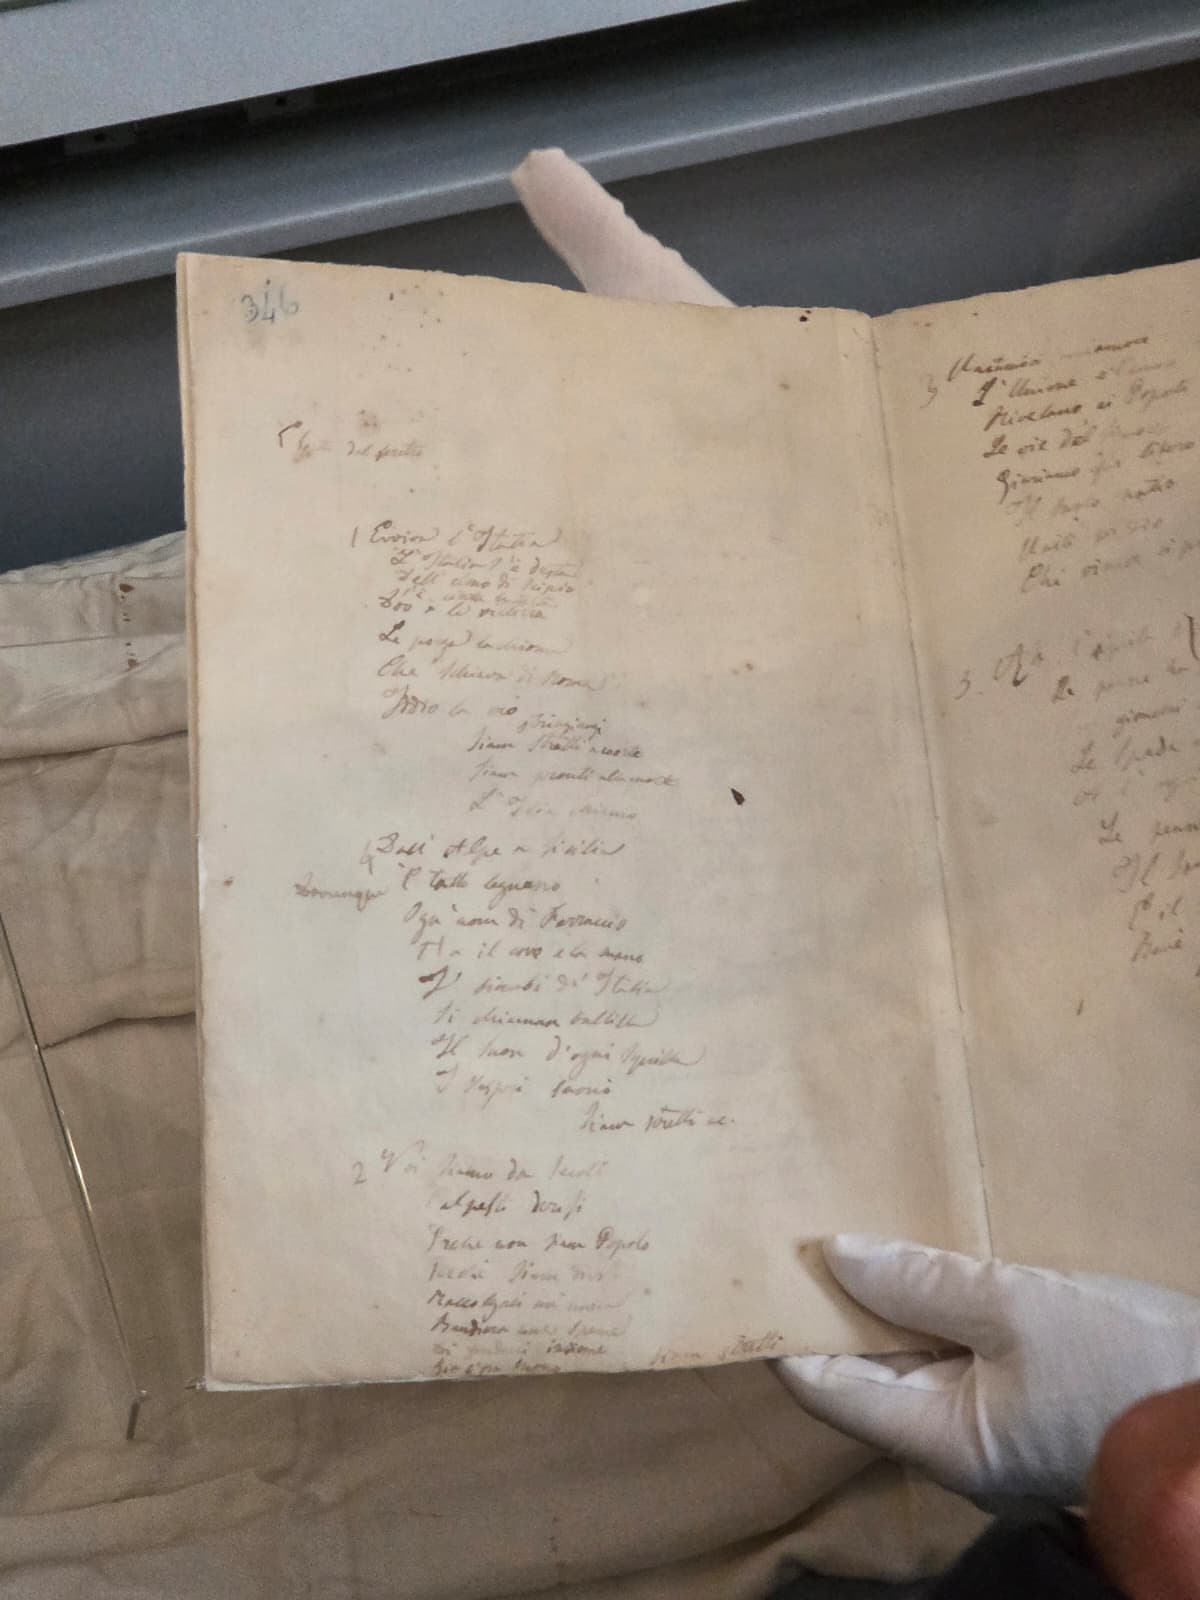 346
del
1 Evviva l'Italia
L'Italia s'è desta
Dell'elmo di Scipio
S'è cinta la testa
Dov'è la vittoria
Le porga la chioma
Che schiava di Roma
Iddio la creò
stringiamoci
Siam stretti a coorte
Siam pronti alla morte
L'Italia chiamò
4 Dall' Alpe a Sicilia
Dovunque È tutto Legnano
Ogn' uom di Ferruccio
Ha il core e la mano
I bimbi d' Italia
Si chiaman Balilla
Il suon d'ogni squilla
I Vespri suonò
Siam stretti ec.
2 Noi siamo da secoli
Calpesti derisi
Perché non siam Popolo
Perché siam divisi
Raccolgaci un' unica
Bandiera una speme
Di fonderci insieme
Già l'ora suonò
Siam stretti
3 Uniamoci amiamoci
L' Unione e l'amore
Rivelano ai Popoli
Le vie del
Giuriamo far libero
Il suolo natio
Uniti per Dio
Chi vincer ci
5. l'aquila
Le penne ha
Le spade
Le penn
Il
E il